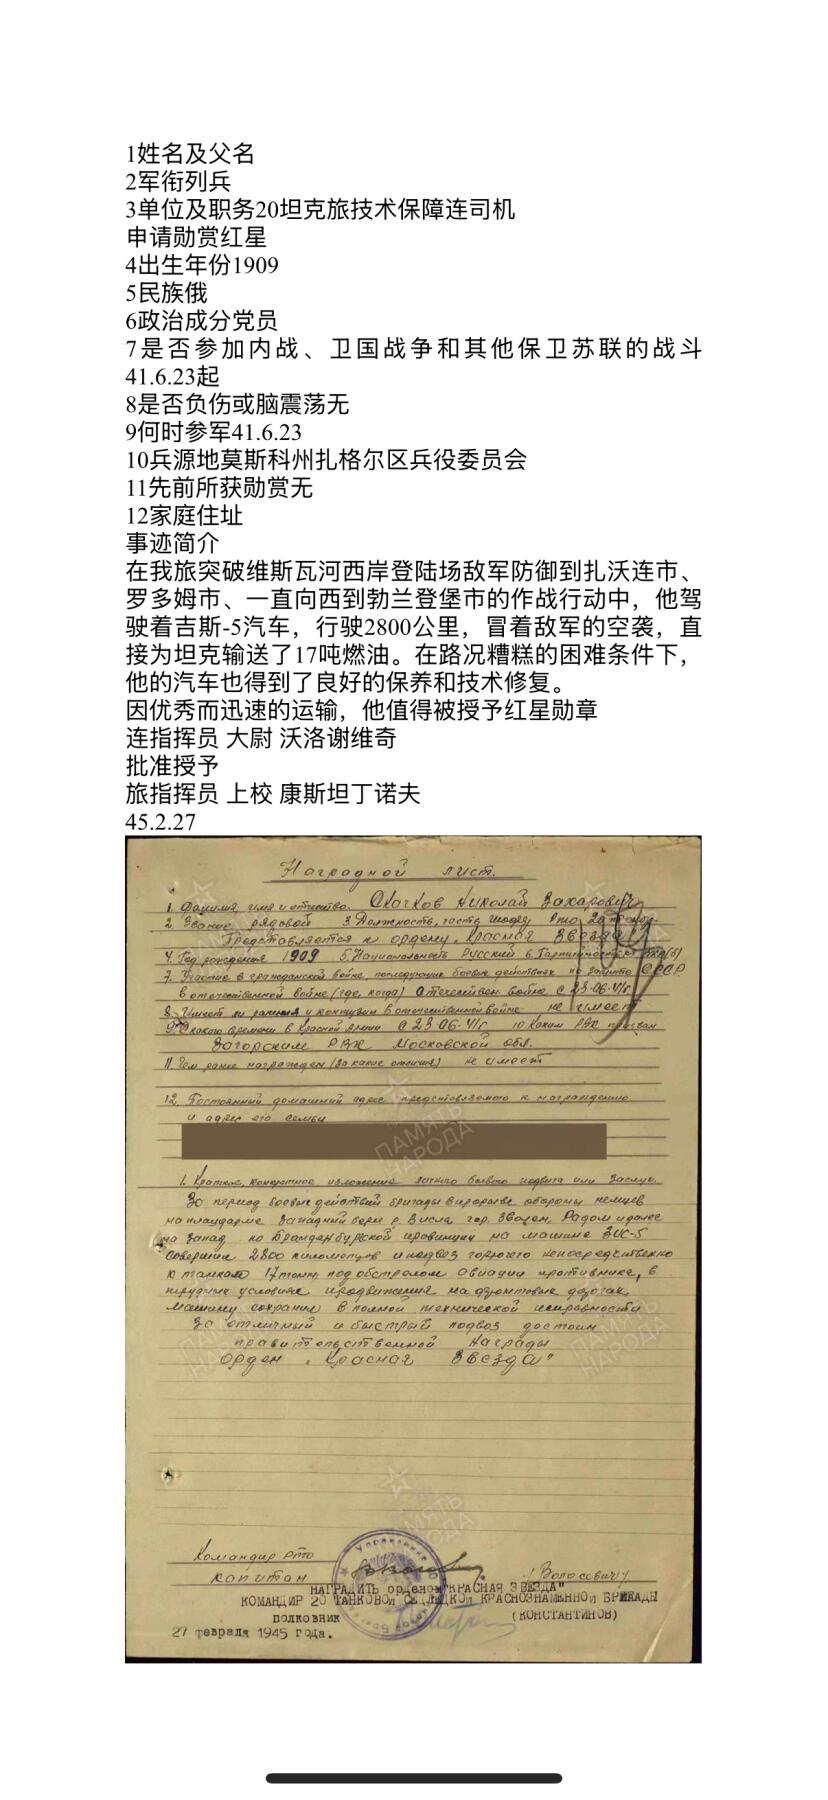 1姓名及父名
2军衔列兵
3单位及职务20坦克旅技术保障连司机
申请勋赏红星
4出生年份1909
5民族俄
6政治成分党员
7是否参加内战、卫国战争和其他保卫苏联的战斗
41.6.23起
8是否负伤或脑震荡无
9何时参军41.6.23
10兵源地莫斯科州扎格尔区兵役委员会
11先前所获勋赏无
12家庭住址
事迹简介
在我旅突破维斯瓦河西岸登陆场敌军防御到扎沃连市、
罗多姆市、一直向西到勃兰登堡市的作战行动中，他驾
驶着吉斯-5汽车，行驶2800公里，冒着敌军的空袭，直
接为坦克输送了17吨燃油。在路况糟糕的困难条件下，
他的汽车也得到了良好的保养和技术修复。
因优秀而迅速的运输，他值得被授予红星勋章
连指挥员 大尉 沃洛谢维奇
批准授予
旅指挥员 上校 康斯坦丁诺夫
45.2.27
Наградной лист.
1. Фамилия, имя и отчество Скачков Николай Захарович
2. Звание рядовой 3. Должность, часть шофер рто 20
Представляется к ордену „Красная Звезда"
4. Год рождения 1909 5. Национальность Русский 6. Партийность
7. Участие в гражданской войне, последующих боевых действиях по защите СССР
в отечественной войне (где, когда) Отечествен. война с 23.06.41г.
8. Имеет ли ранения и контузии в отечественной войне не имеет
9. С какого времени в Красной Армии с 23.06.41г. 10 Каким РВК призван
Загорским РВК Московской обл.
11. Чем ранее награжден (за какие отличия) не имеет
12. Постоянный домашний адрес представляемого к награждению
и адрес его семьи
1. Краткое, конкретное изложение личного боевого подвига или заслуг.
За период боевых действий бригады в прорыве обороны немцев
на плацдарме западный берег р. Висла гор. Зволен, Радом и далее
на запад по Бранденбургской провинции на машине ЗИС-5
совершил 2800 километров и подвез горючего непосредственно
к танкам 17 тонн, под обстрелом авиации противника, в
трудных условиях продвижения на грунтовых дорогах,
машину сохранил в полной технической исправности
За отличный и быстрый подвоз достоин
правительственной награды
орден „Красная Звезда"
Командир рто
капитан /Волосевич/
НАГРАДИТЬ орденом "КРАСНАЯ ЗВЕЗДА"
КОМАНДИР 20 ТАНКОВОЙ СЕДЛЕЦКОЙ КРАСНОЗНАМЕННОЙ БРИГАДЫ
ПОЛКОВНИК (КОНСТАНТИНОВ)
27 февраля 1945 года.
ПАМЯТЬ
НАРОДА